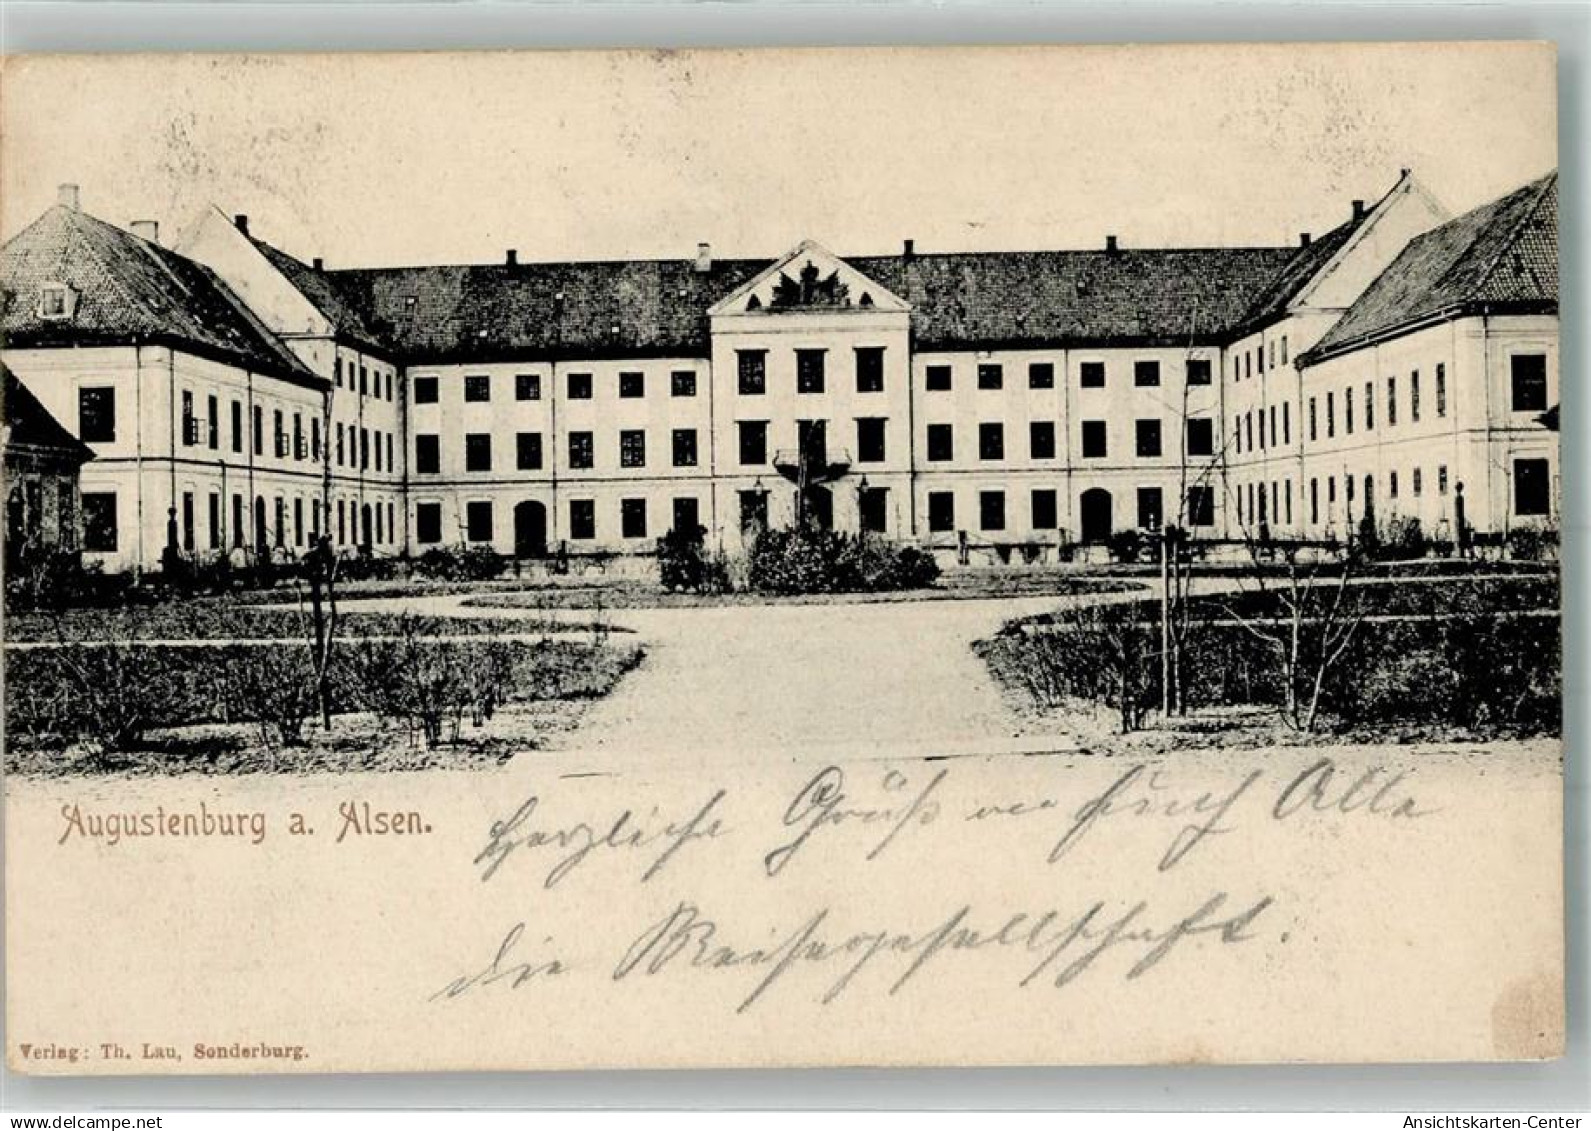 Augustenburg a. Alsen.
Herzliche Grüße an Euch Alle
die Reisegesellschaft.
Verlag: Th. Lau, Sonderburg.
oldthing.de
Ansichtskarten-Center